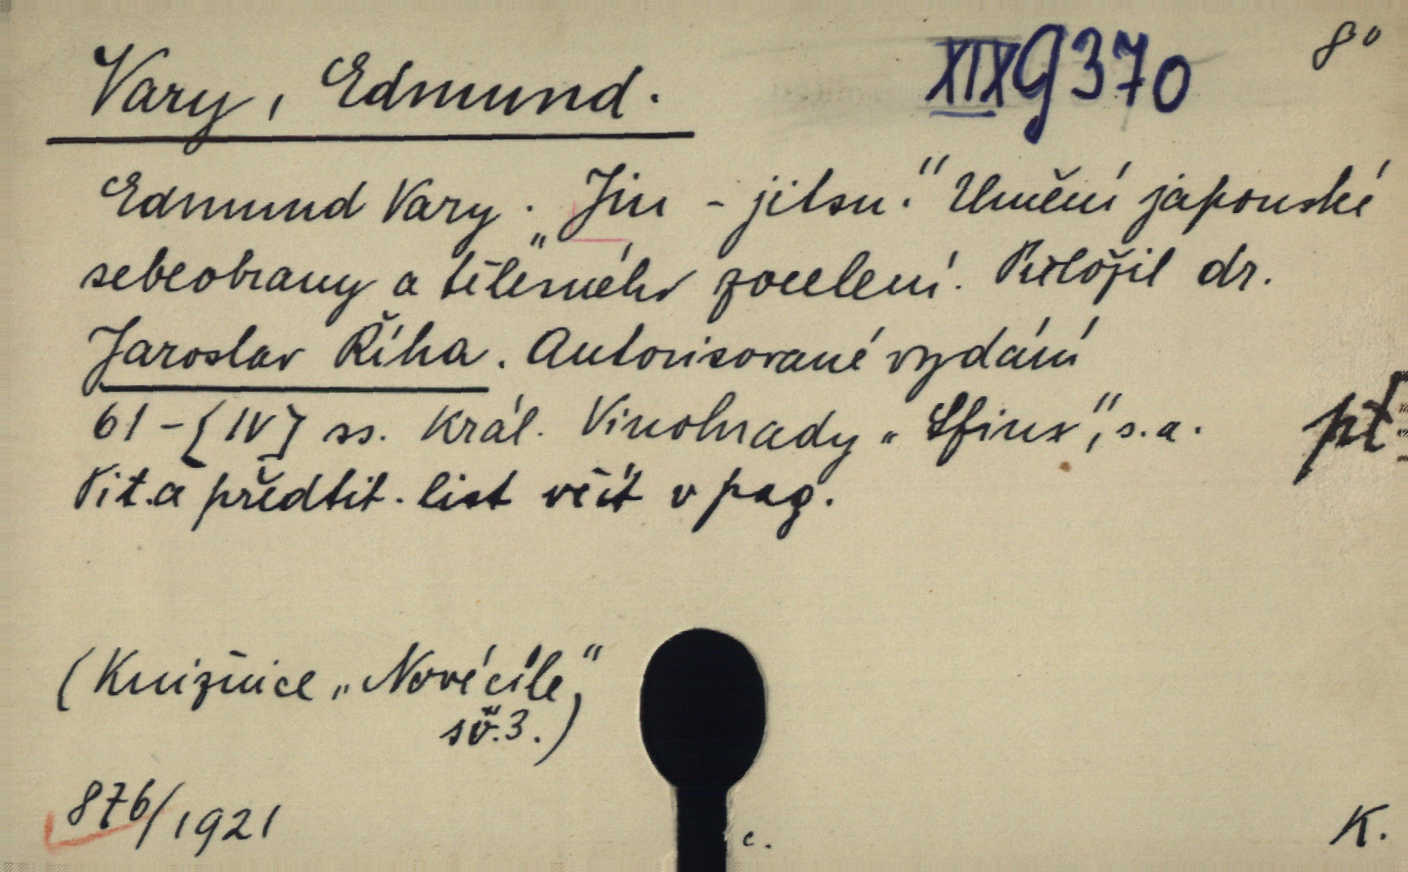 Vary, Edmund.
XIX G 370
8°
Edmund Vary. „Jiu-jitsu.“ Umění japonské
sebeobrany a tělesného zocelení. Přeložil dr.
Jaroslav Říha. Autorisované vydání
61-[IV] ss. Král. Vinohrady „Sfinx“, s.a.
pt
Tit. a předtit. list včít v pag.
(Knižnice „Nové cíle“,
sv. 3.)
876/1921
c.
K.